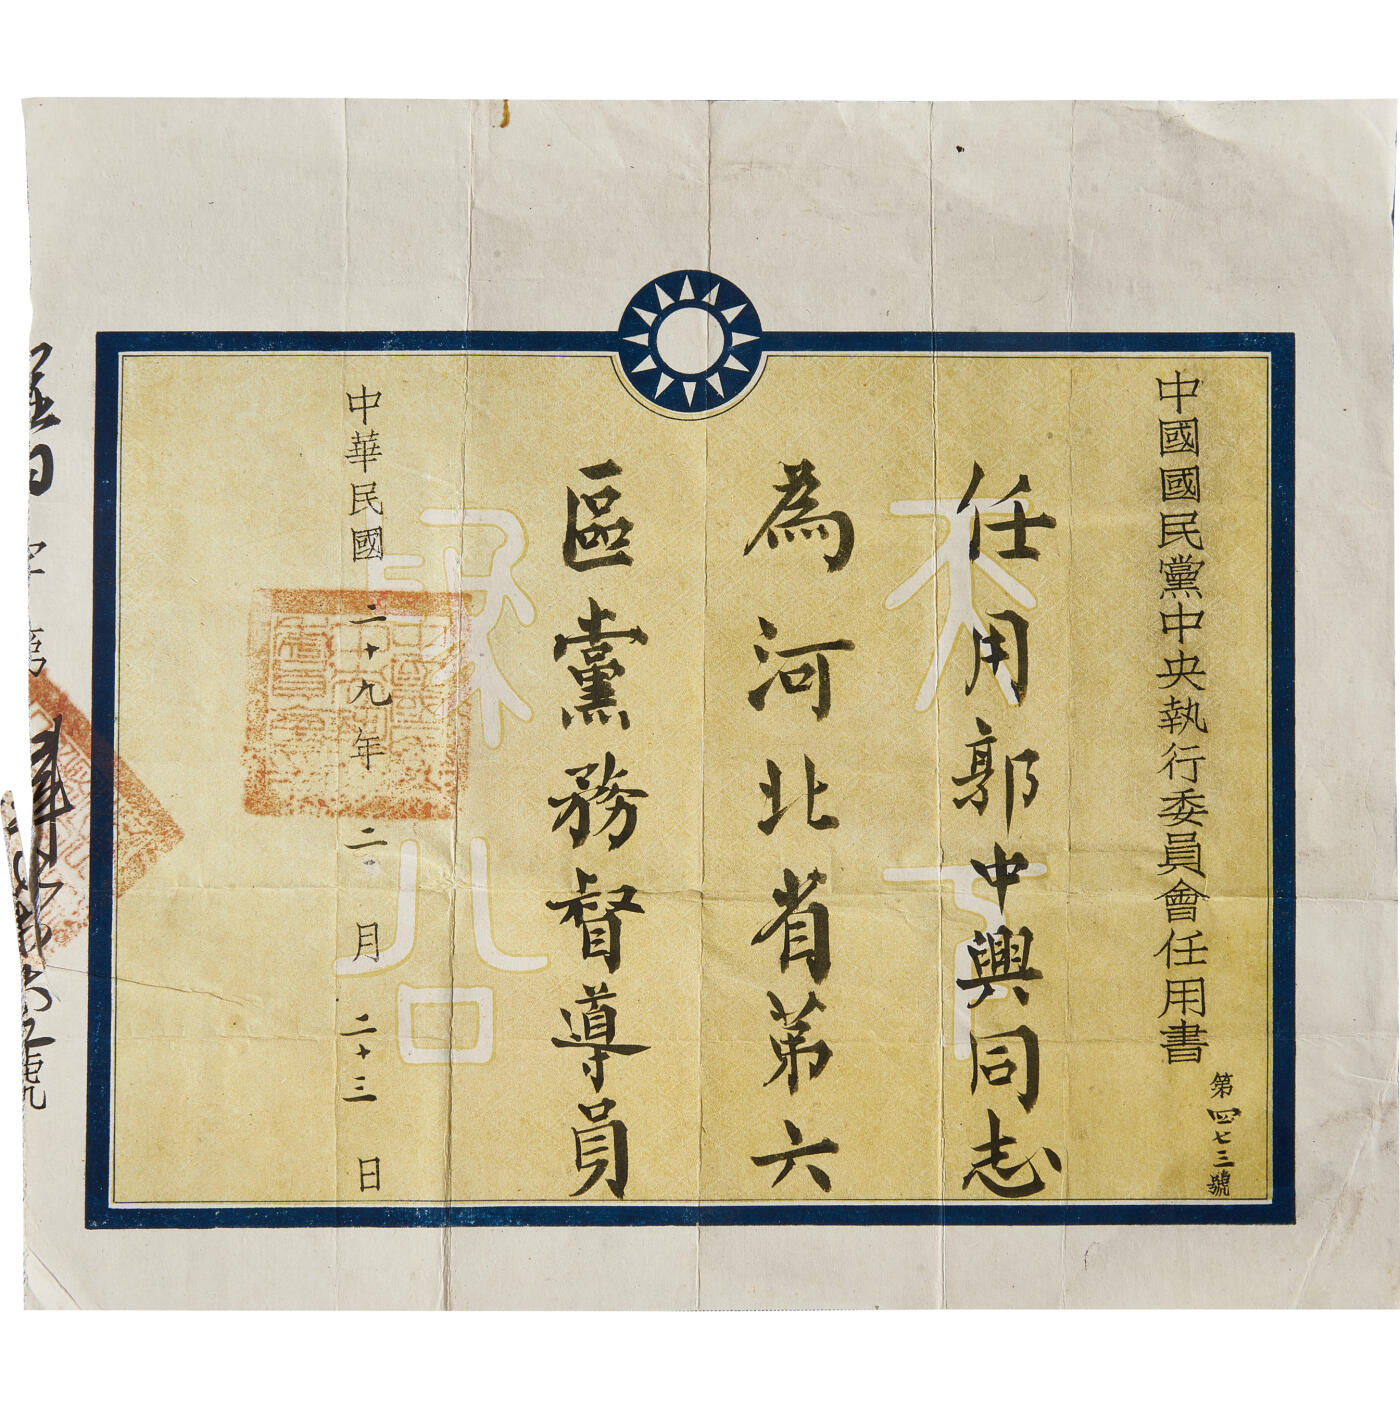 中國國民黨中央執行委員會任用書
第四七三號
任用郭中興同志
為河北省第六
區黨務督導員
中華民國二十九年二月二十三日
天下為公